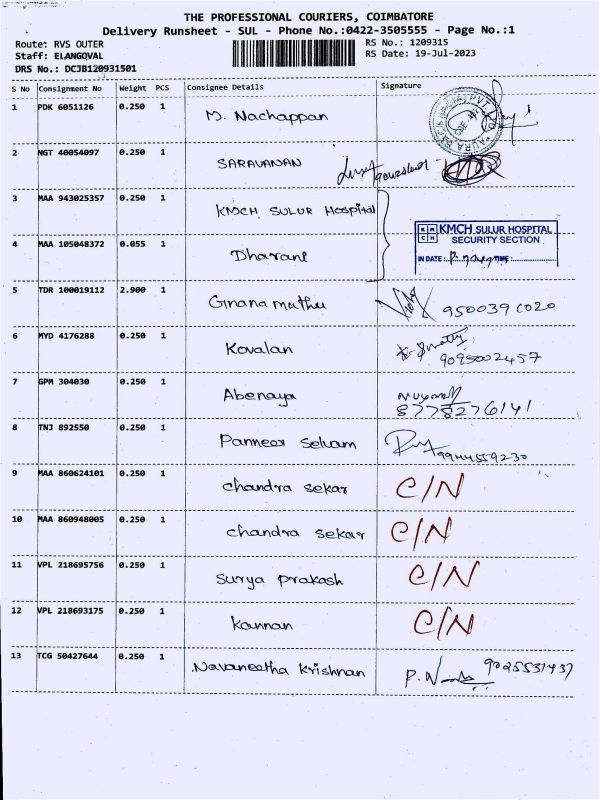 THE PROFESSIONAL COURIERS, COIMBATORE
Delivery Runsheet - SUL - Phone No.:0422-3505555 - Page No.:1
Route: RVS OUTER
RS No.: 1209315
Staff: ELANGOVAL
RS Date: 19-Jul-2023
DRS No.: DCJB120931501
S No Consignment No Weight PCS Consignee Details Signature
1 PDK 6051126 0.250 1 M. Nachappan
2 NGT 40054097 0.250 1 SARAVANAN
3 MAA 943025357 0.250 1 KMCH SULUR Hospital
KMCH KMCH SULUR HOSPITAL
SECURITY SECTION
4 MAA 105048372 0.055 1 Dharani
IN DATE: TIME:
5 TDR 100019112 2.900 1 Gnana muthu 9500391020
6 MYD 4176288 0.250 1 Kovalan 9095002457
7 GPM 304030 0.250 1 Abenaya 8778276141
8 TNJ 892550 0.250 1 Panneer Selvam 9944559230
9 MAA 860624101 0.250 1 chandra sekar C/N
10 MAA 860948005 0.250 1 chandra sekar C/N
11 VPL 218695756 0.250 1 Surya prakash C/N
12 VPL 218693175 0.250 1 Kannan C/N
13 TCG 50427644 0.250 1 Navaneetha Krishnan 9025531437